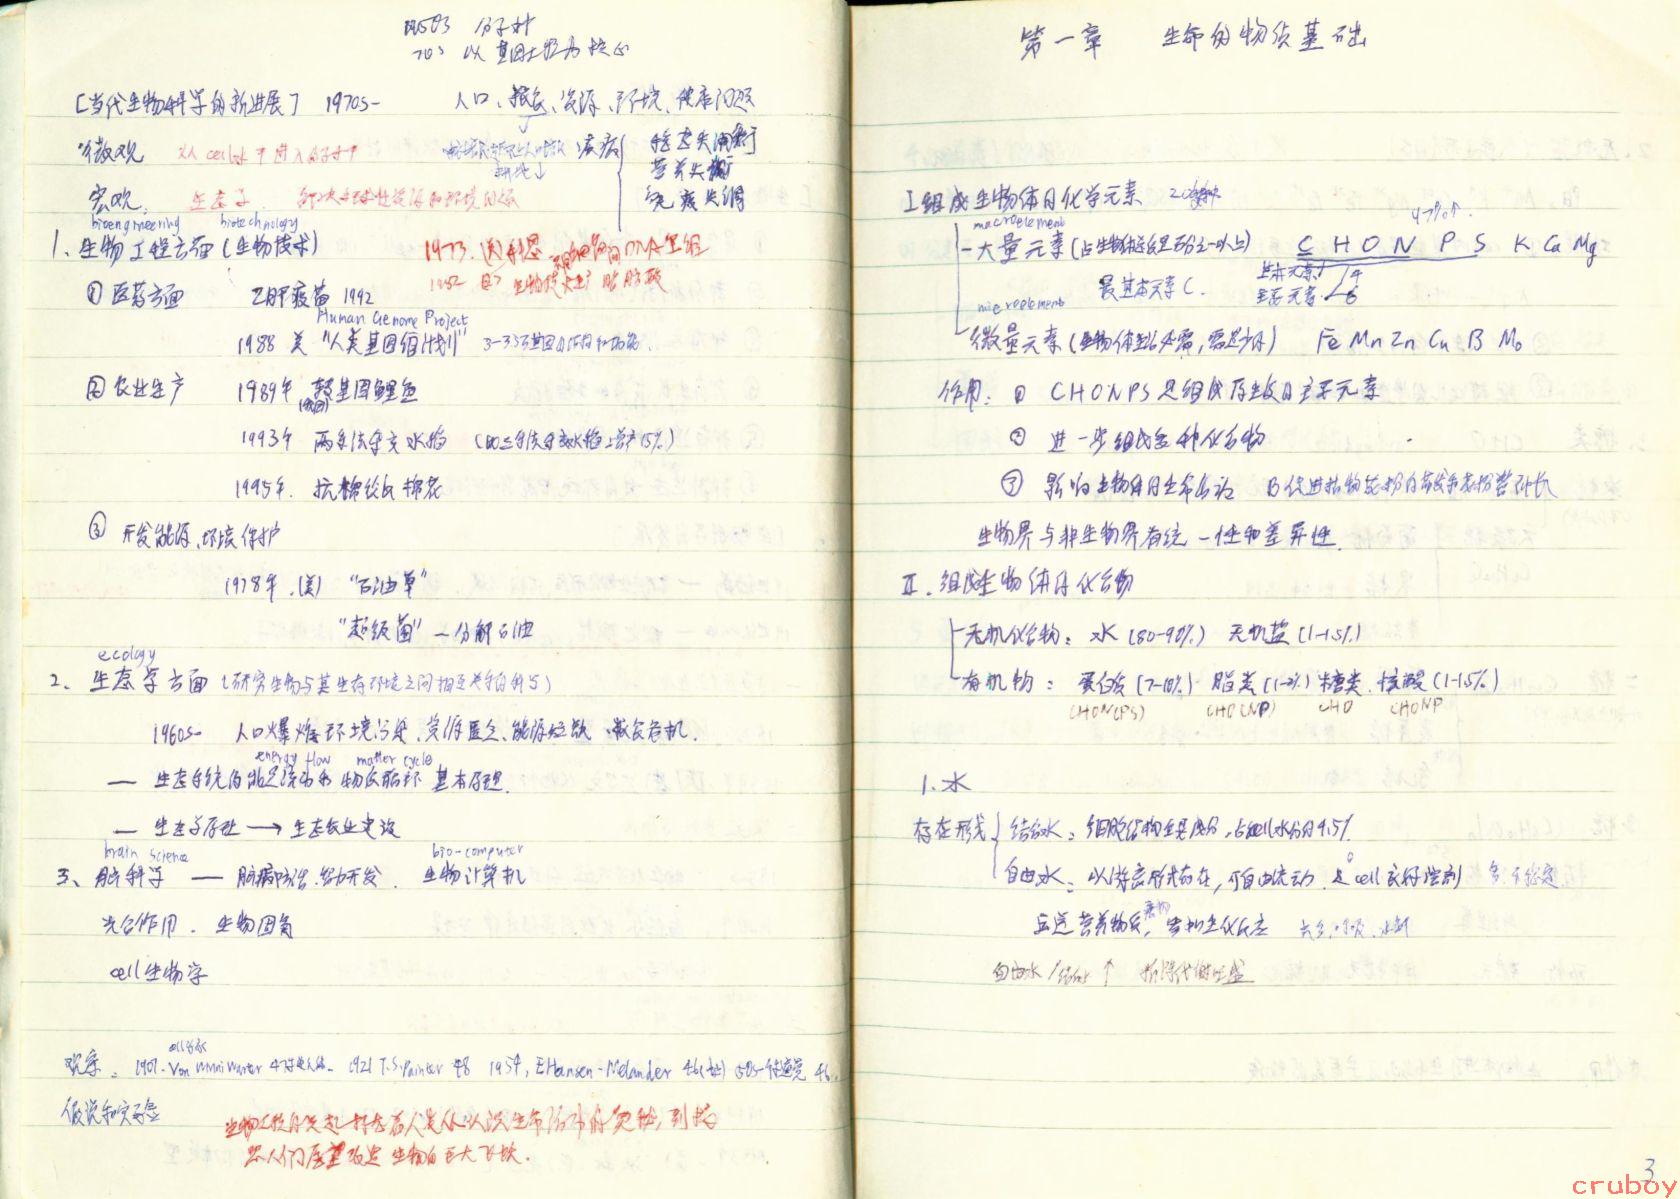 以基因工程为核心
[当代生物科学的新进展] 1970s- 人口、粮食、资源、环境、健康问题
微观 从cell水平进入分子水平 疾病 营养失衡
宏观 生态学 解决全球性资源和环境问题 免疫失调
bioengineering biotechnology
1、生物工程方面(生物技术) 1973 (美)科恩 DNA重组
① 医药方面 乙肝疫苗 1992 1982 胰岛素
Human Genome Project
1988 美 "人类基因组计划" 3-3.5万基因
② 农业生产 1989年 转基因鲤鱼
(我国)
1993年 两系法杂交水稻 (比三系法杂交水稻增产15%)
1995年. 抗棉铃虫棉花
③ 开发能源、环境保护
1978年 (美) "石油草"
"超级菌" — 分解石油
ecology
2、生态学方面 (研究生物与其生存环境之间相互关系的科学)
1960s- 人口爆炸、环境污染、资源匮乏、能源短缺、粮食危机.
energy flow matter cycle
— 生态系统的能量流动和物质循环 基本原理.
— 生态学原理 → 生态农业建设
brain science bio-computer
3、脑科学 — 脑病防治、智力开发. 生物计算机
光合作用. 生物固氮
cell生物学
观察: 1901. Von Winiwarter 47 1921 T.S.Painter 48 1954, E.Hansen-Melander 46 46.
假说和实验
生物工程的兴起标志着人类从认识生命活动的奥秘,到按
照人们愿望改造生物的巨大飞跃.
第一章 生命的物质基础
I 组成生物体的化学元素 20多种
macroelement 97%↑
大量元素(占生物体总重量万分之一以上) C H O N P S K Ca Mg
最基本元素 C. 基本元素 4
主要元素 6
microelement
微量元素(生物体生活必需,需量少的) Fe Mn Zn Cu B Mo
作用: ① CHONPS是组成原生质的主要元素
② 进一步组成多种化合物
③ 影响生物体的生命活动 B促进植物花粉的萌发和花粉管伸长
生物界与非生物界有统一性和差异性.
II. 组成生物体的化合物
无机化合物: 水(80-90%) 无机盐(1-1.5%)
有机物: 蛋白质(7-10%) 脂类(1-2%) 糖类、核酸(1-1.5%)
CHON(PS) CHO(NP) CHO CHONP
1. 水
存在形式 结合水: 细胞结构主要成分,占cell水分的4.5%
自由水: 以游离形式存在,可自由流动 是cell良好溶剂 多、不稳定
运送营养物质,参加生化反应 光合、呼吸、水解
自由水/结合水 ↑ 新陈代谢旺盛
3
cruboy